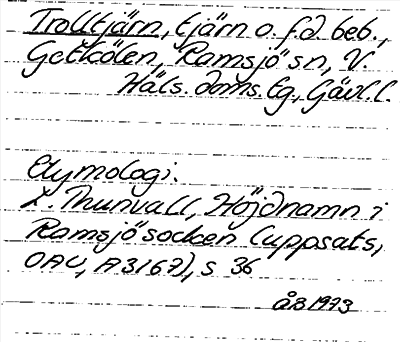 Trolltjärn, tjärn o. f.d. beb.,
Getkölen, Ramsjö sn, V.
Häls. doms. tg., Gävl. l.
Etymologi.
L. Thunvall, Höjdnamn i
Ramsjö socken (uppsats,
OAU, A3167), s 36
ÅB 1973